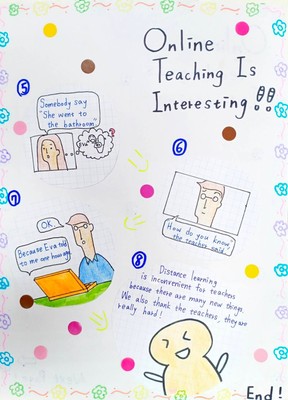 Online
Teaching Is
Interesting!!
5
Somebody say
"She went to
the bathroom"
6
How do you know,
the teacher said.
7
OK.
Because Eva told
to me one hour ago.
8
Distance learning
is inconvenient for teachers
because there are many new things.
We also thank the teachers, they are
really hard!
End!